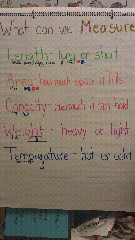 What can we Measure
Length: long or short
Area: how much space it fills
Capacity: how much it can hold
Weight - heavy or light
Temperature - hot or cold